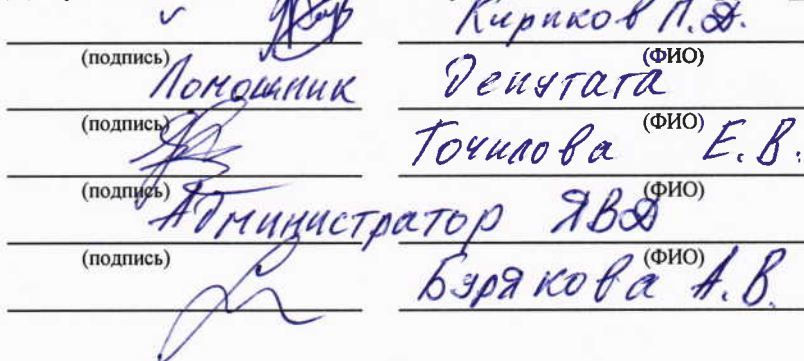 Кириков П.Д.
(подпись) (ФИО)
Помошник Депутата
(подпись) (ФИО)
Точилова Е.В.
(подпись) (ФИО)
Администратор ЯВД
(подпись) (ФИО)
Бурякова А.В.